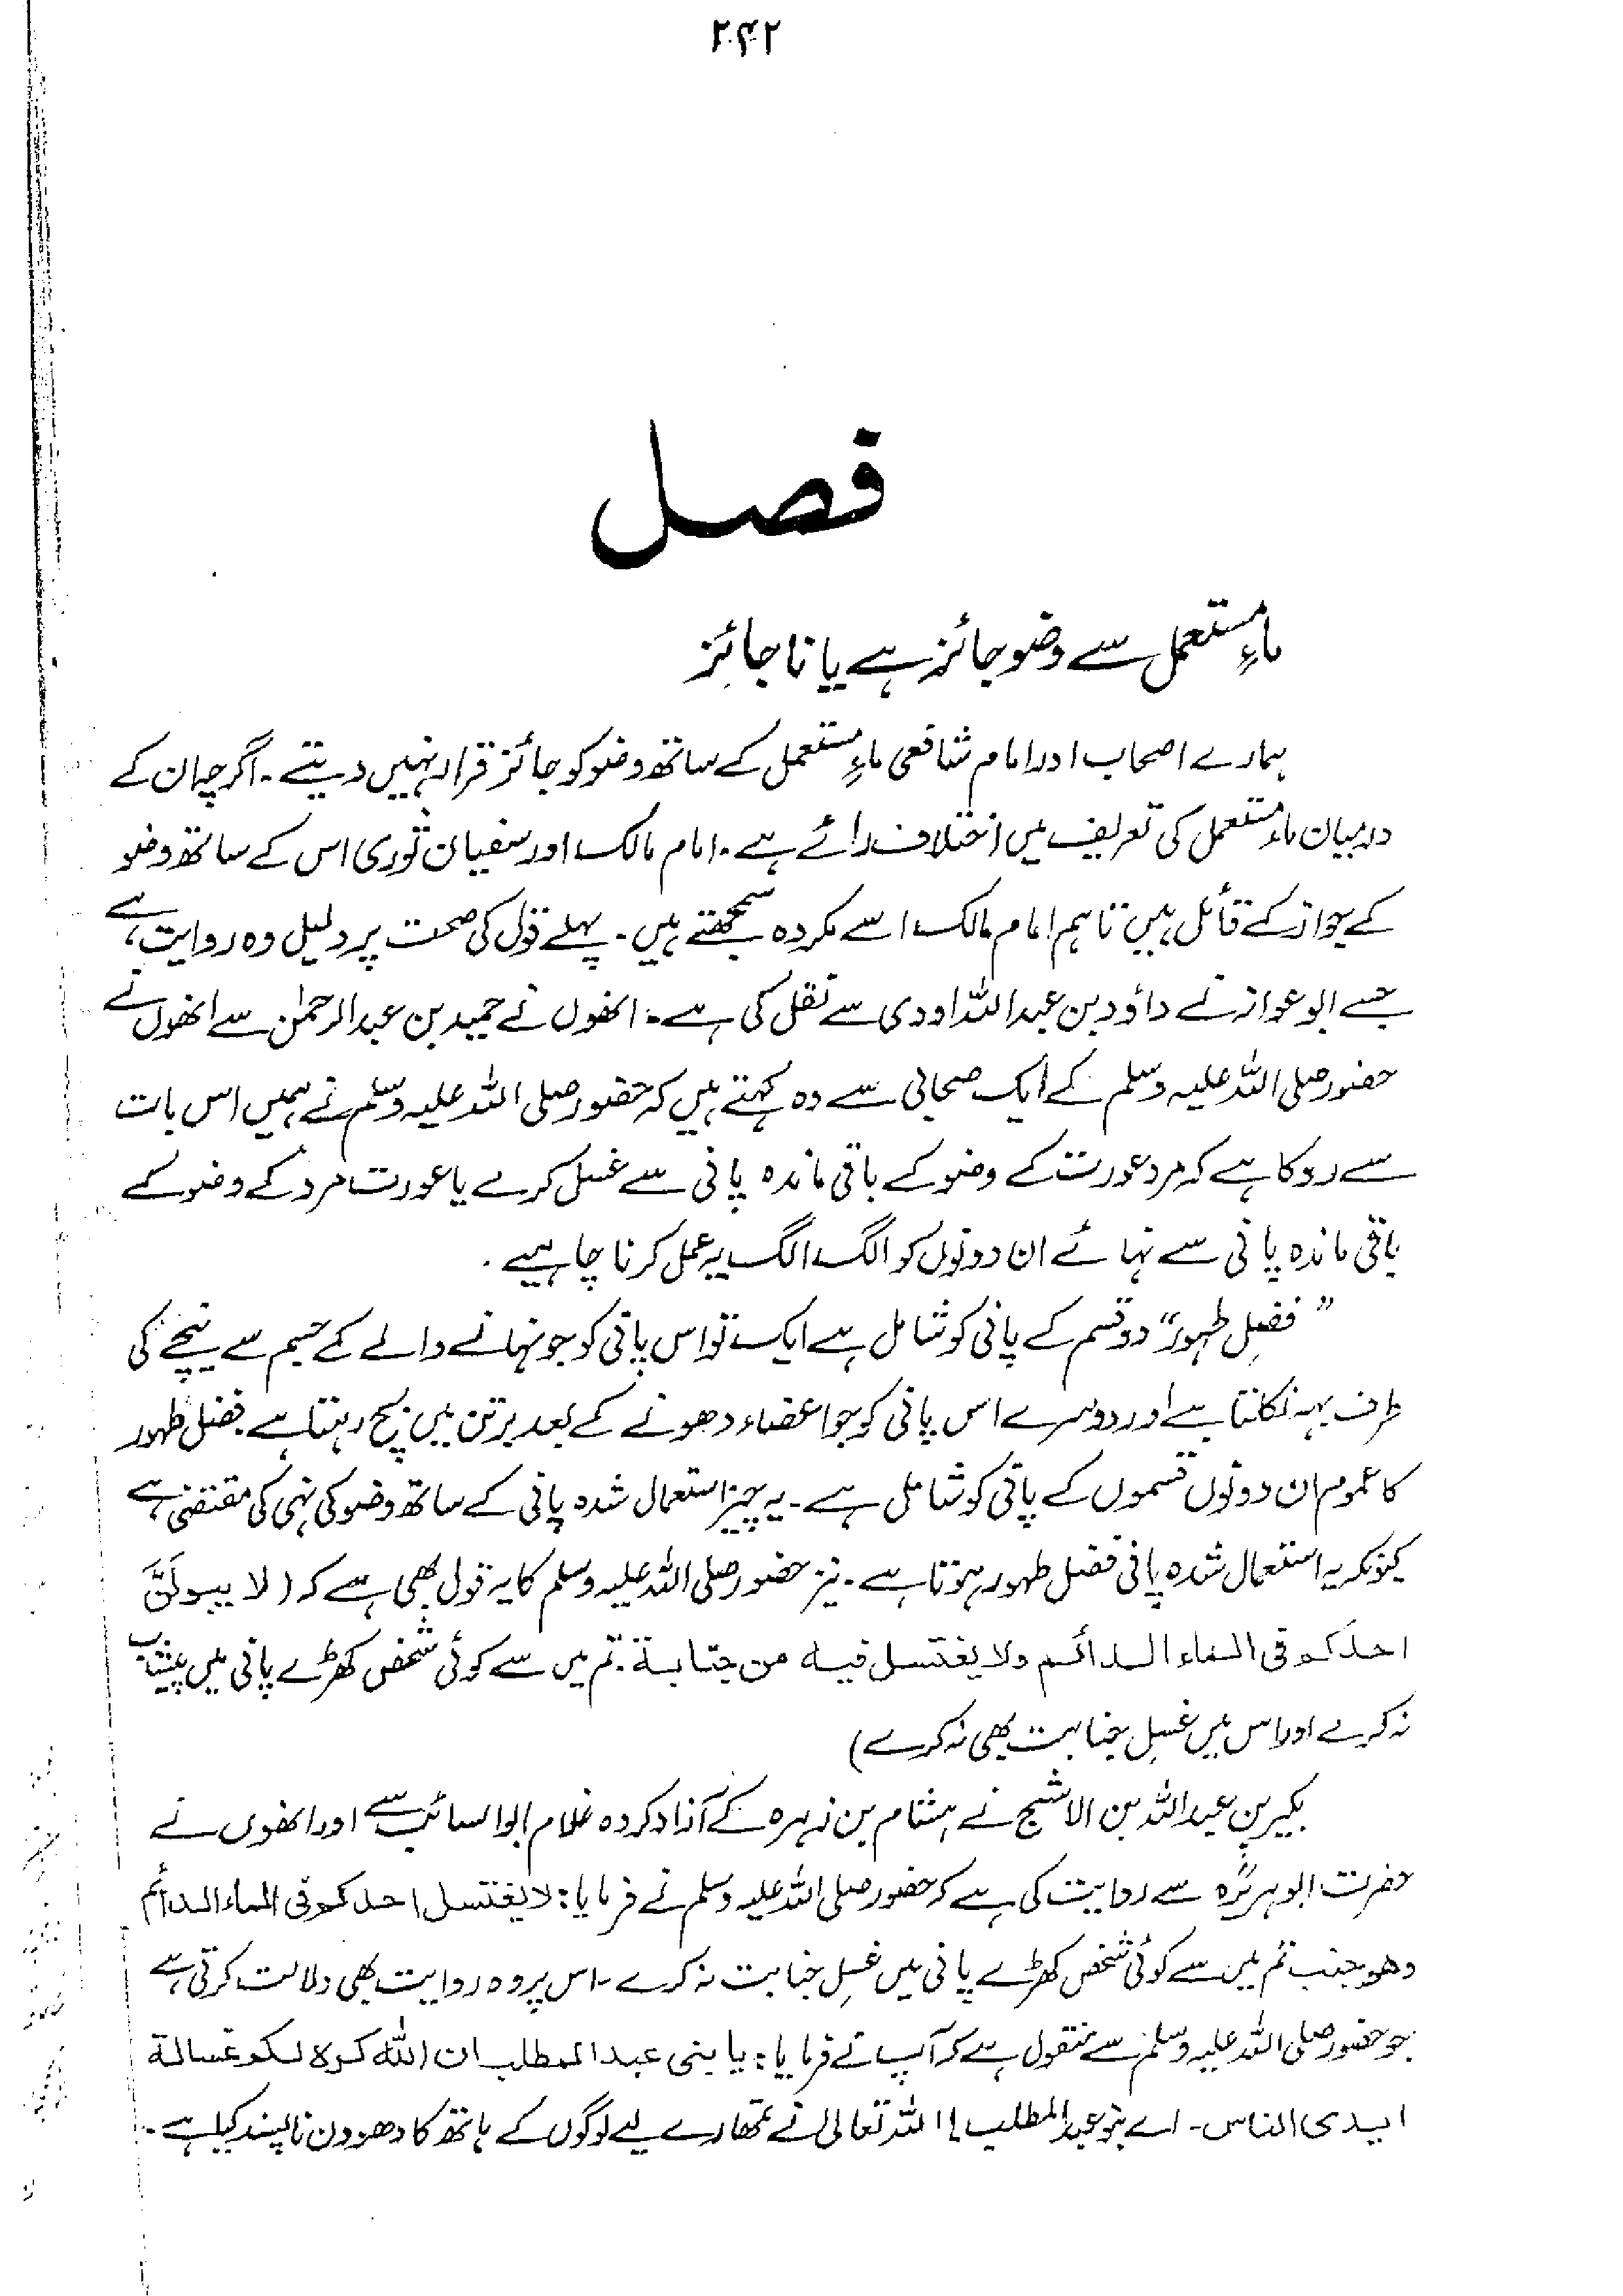 ۲۴۲
فصل
ماءِ مستعمل سے وضو جائز ہے یا ناجائز
ہمارے اصحاب اور امام شافعی ماءِ مستعمل کے ساتھ وضو کو جائز قرار نہیں دیتے۔ اگرچہ ان کے
درمیان ماء مستعمل کی تعریف میں اختلاف رائے ہے۔ امام مالک اور سفیان ثوری اس کے ساتھ وضو
کے جواز کے قائل ہیں تاہم امام مالک اسے مکروہ سمجھتے ہیں۔ پہلے قول کی صحت پر دلیل وہ روایت ہے،
جسے ابو عوانہ نے داؤد بن عبداللہ اودی سے نقل کی ہے۔ انھوں نے حمید بن عبدالرحمٰن سے انھوں نے
حضور صلی اللہ علیہ وسلم کے ایک صحابی سے وہ کہتے ہیں کہ حضور صلی اللہ علیہ وسلم نے ہمیں اس بات
سے روکا ہے کہ مرد عورت کے وضو کے باقی ماندہ پانی سے غسل کرے یا عورت مرد کے وضو کے
باقی ماندہ پانی سے نہائے ان دونوں کو الگ الگ یہ عمل کرنا چاہیے۔
”فضلِ طہور“ دو قسم کے پانی کو شامل ہے ایک تو اس پانی کو جو نہانے والے کے جسم سے نیچے کی
طرف بہہ نکلتا ہے اور دوسرے اس پانی کو جو اعضاء دھونے کے بعد برتن میں بچ رہتا ہے۔ فضل طہور
کا عموم ان دونوں قسموں کے پانی کو شامل ہے۔ یہ چیز استعمال شدہ پانی کے ساتھ وضو کی نہی کی مقتضی ہے
کیونکہ یہ استعمال شدہ پانی فضل طہور ہوتا ہے۔ نیز حضور صلی اللہ علیہ وسلم کا یہ قول بھی ہے کہ (لا یبولَنَّ
احدکم فی الماء الدائم ولا یغتسل فیہ من جنابۃ۔ تم میں سے کوئی شخص کھڑے پانی میں پیشاب
نہ کرے اور اس میں غسلِ جنابت بھی نہ کرے)
بکیر بن عبداللہ بن الاشج نے ہشام بن زہرہ کے آزاد کردہ غلام ابوالسائب سے اور انھوں نے
حضرت ابوہریرہؓ سے روایت کی ہے کہ حضور صلی اللہ علیہ وسلم نے فرمایا: لا یغتسل احدکم فی الماء الدائم
وھو جنب تم میں سے کوئی شخص کھڑے پانی میں غسلِ جنابت نہ کرے۔ اس پر وہ روایت بھی دلالت کرتی ہے
جو حضور صلی اللہ علیہ وسلم سے منقول ہے کہ آپ نے فرمایا: یا بنی عبدالمطلب ان اللہ کرہ لکم غسالۃ
ایدی الناس۔ اے بنو عبدالمطلب! اللہ تعالیٰ نے تمھارے لیے لوگوں کے ہاتھ کا دھوون ناپسند کیا ہے۔